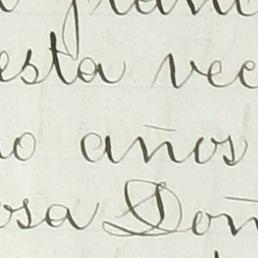 esta vec
años
osa Doñ